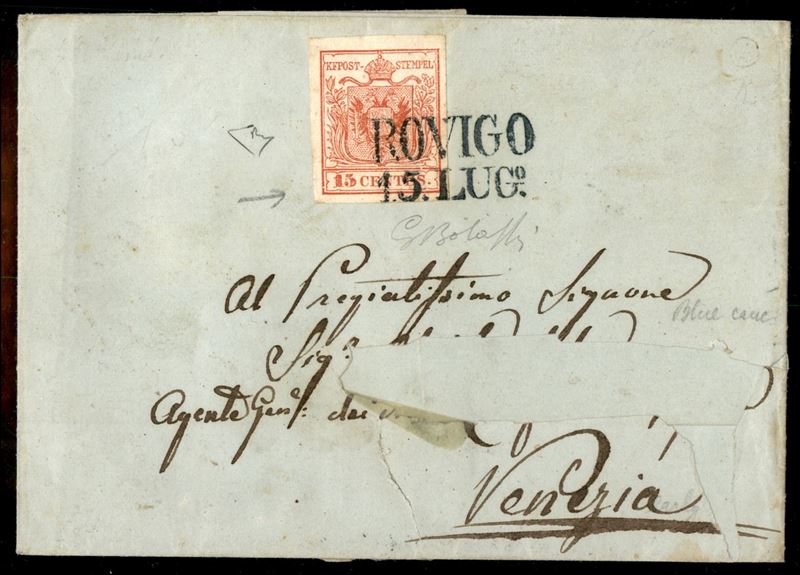 KFPOST-STEMPEL
15 CENTES.
ROVIGO
15. LUGº.
G Bolaffi
Al Pregiatissimo Signore
Blue
Sigr.
Agente Genle: dei
Venezia